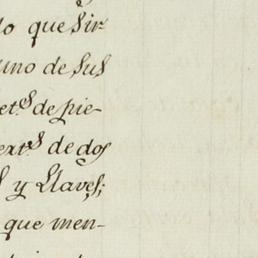 lo que Sir-
uno de sus
et.s de pie-
ert.s de dos
y Llaves;
que men-